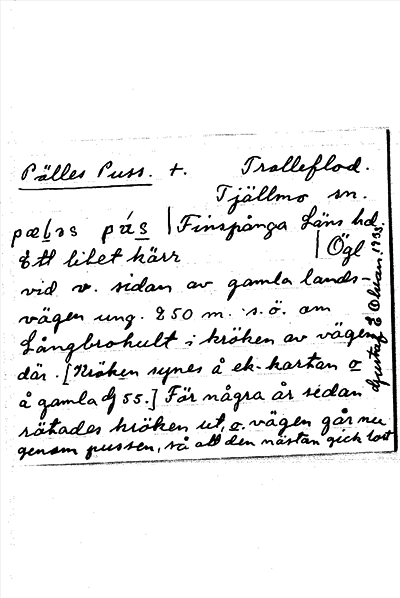 Pälles Puss. +. Trolleflod.
Tjällmo sn.
pæḷəs pús | Finspånga Läns hd.
Ett litet kärr | Ögl
vid v. sidan av gamla lands-
vägen ung. 850 m. s.ö. om
Långbrohult i kröken av vägen
där. [Kröken synes å ek-kartan o
å gamla 55.] För några år sedan
rätades kröken ut, o. vägen går nu
genom pussen, så att den nästan gick bort
Gustaf E Ohman. 1935